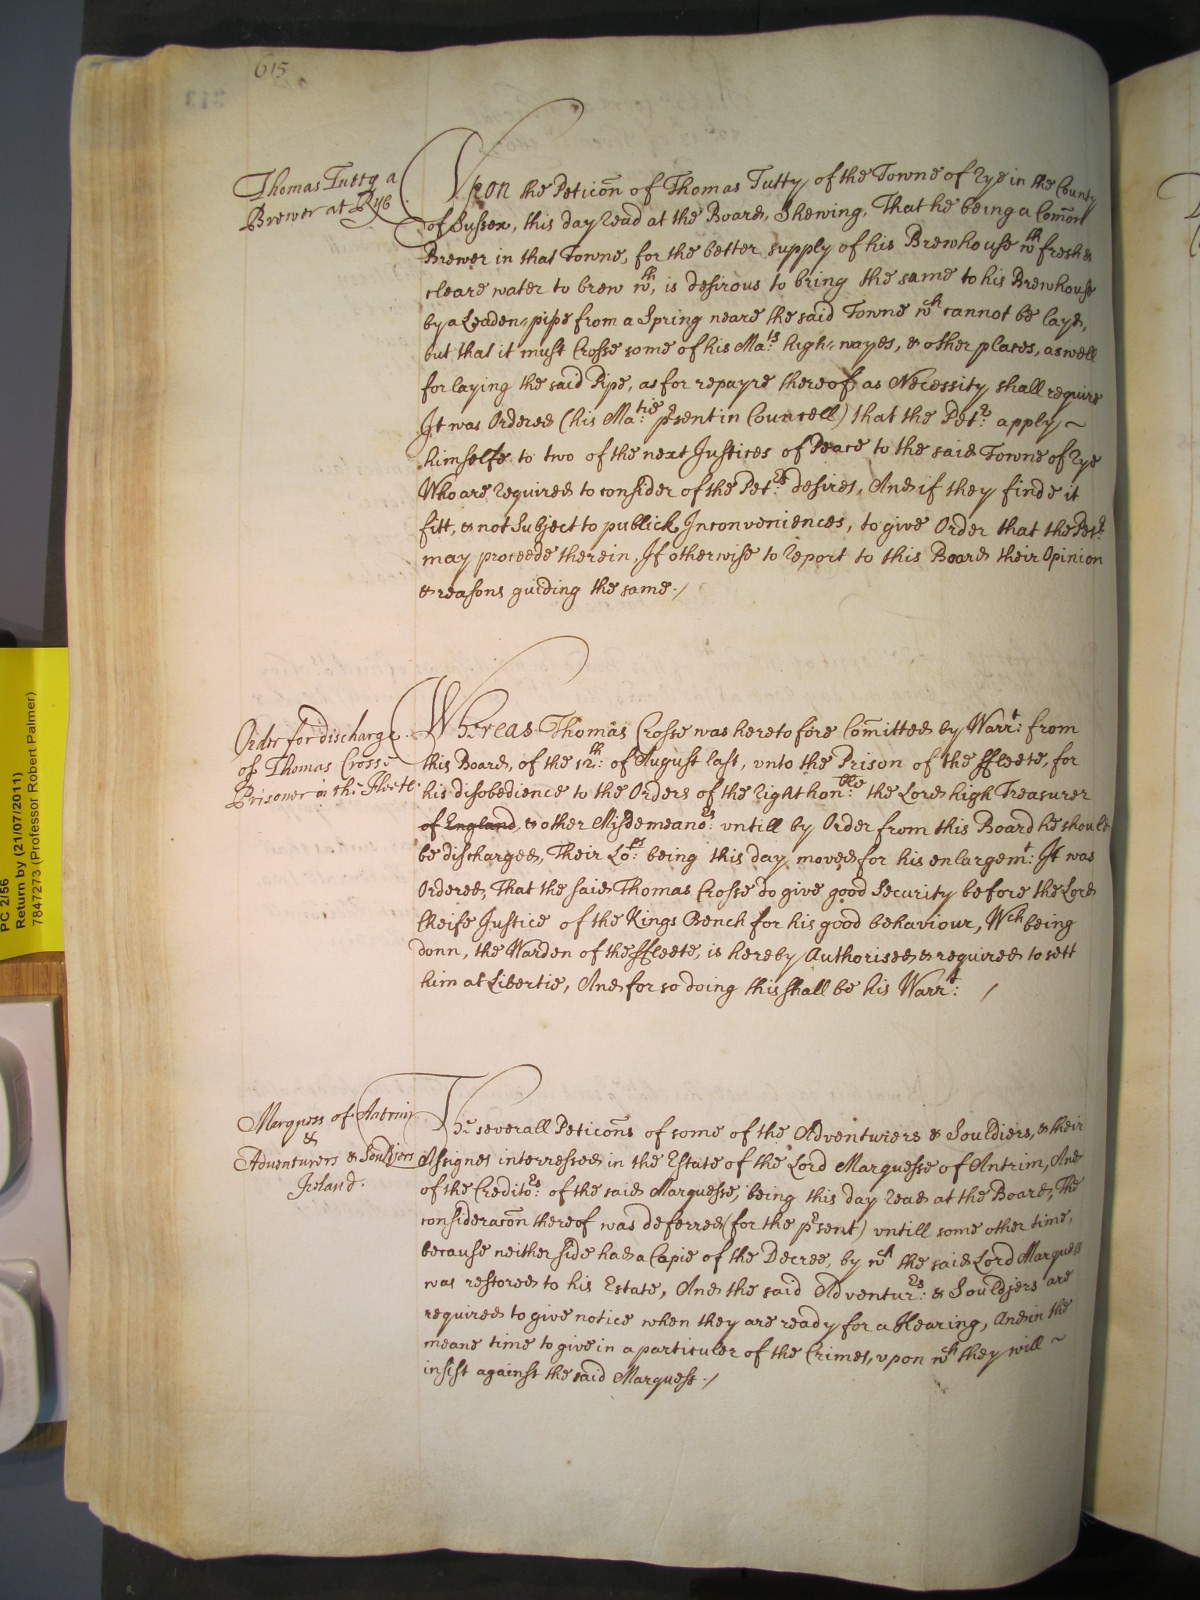 615
Thomas Tutty a
Brewer at Rye
Vpon the Peticōn of Thomas Tutty of the Towne of Rye in the County
of Sussex, this day read at the Board, Shewing, That he being a Comōn
Brewer in that Towne, for the better supply of his Brewhouse wth fresh &
cleare water to brew wth, is desirous to bring the same to his Brewhouse
by a Leaden pipe from a Spring neare the said Towne wch cannot be layd,
but that it must Crosse some of his Mats high wayes, & other places, aswell
for laying the said Pipe, as for repayre thereof, as Necessity shall require
It was Ordered (his Matie psent in Councell) that the Petr: apply ~
himselfe to two of the next Justices of Peace to the said Towne of Rye
Who are required to consider of the Petrs: desires, And if they finde it
fitt, & not Subject to publick Inconveniences, to give Order that the Petr:
may proceede therein, If otherwise to report to this Board their Opinion
& reasons guiding the same./
Order for discharge
of Thomas Crosse
Prisoner in the Fleete
Whereas Thomas Crosse was heretofore Comitted by Warrt: from
this Board, of the 12th: of August last, vnto the Prison of the ffleete, for
his disobedience to the Orders of the right honble: the Lord high Treasurer
of England, & other Misdemeanors: vntill by Order from this Board he should
be discharged, Their Lops: being this day moved for his enlargemt: It was
Ordered, That the said Thomas Crosse do give good Security before the Lord
Cheife Justice of the Kings Bench for his good behaviour, Wch being
donn, the Warden of the ffleete, is hereby Authorised & required to sett
him at Libertie, And for so doing this shall be his Warrt: /
Marquess of Antrim
&
Adventurers & Souldjers
Ireland.
The severall Peticōns of some of the Adventurers & Souldiers, & their
Assignes interressed in the Estate of the Lord Marquesse of Antrim, And
of the Creditors: of the said Marquesse, being this day read at the Board, The
consideracōn thereof was deferred (for the pʳsent) vntill some other time,
because neither side had a Copie of the Decree, by wch the said Lord Marquess
was restored to his Estate, And the said Adventurrs: & Souldjers are
required to give notice when they are ready for a Hearing, And in the
meane time to give in a particuler of the Crimes, vpon wch they will ~
insist against the said Marquess./
PC 2/56
Return by (21/07/2011)
7847273 (Professor Robert Palmer)